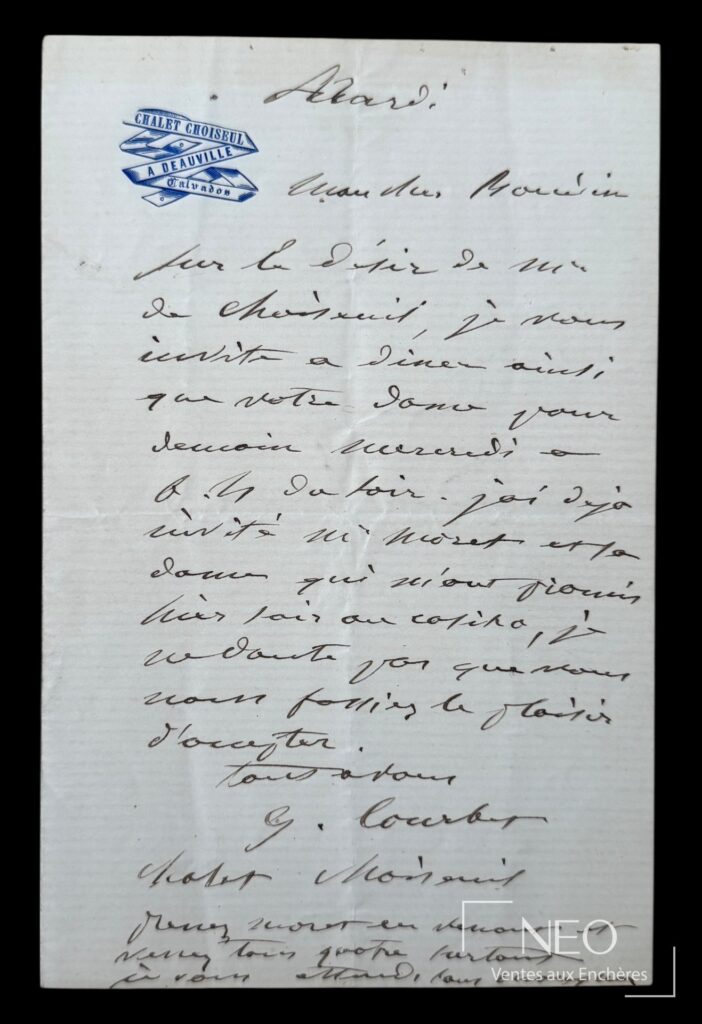 Mardi
CHALET CHOISEUL
A DEAUVILLE
Calvados
Mon cher Boudin
sur le désir de Mr
de Choiseuil, je vous
invite a diner ainsi
que votre dame pour
demain mercredi a
6 h du soir. j'ai deja
invité Mr Monet et sa
dame qui m'ont promis
hier soir au casino, je
ne doute pas que vous
nous fassiez le plaisir
d'accepter.
tout a vous
G. Courbet
Chalet Choiseuil
prenez monet en venant et
venez tous quatre surtout
je vous attend
NEO
Ventes aux Enchères